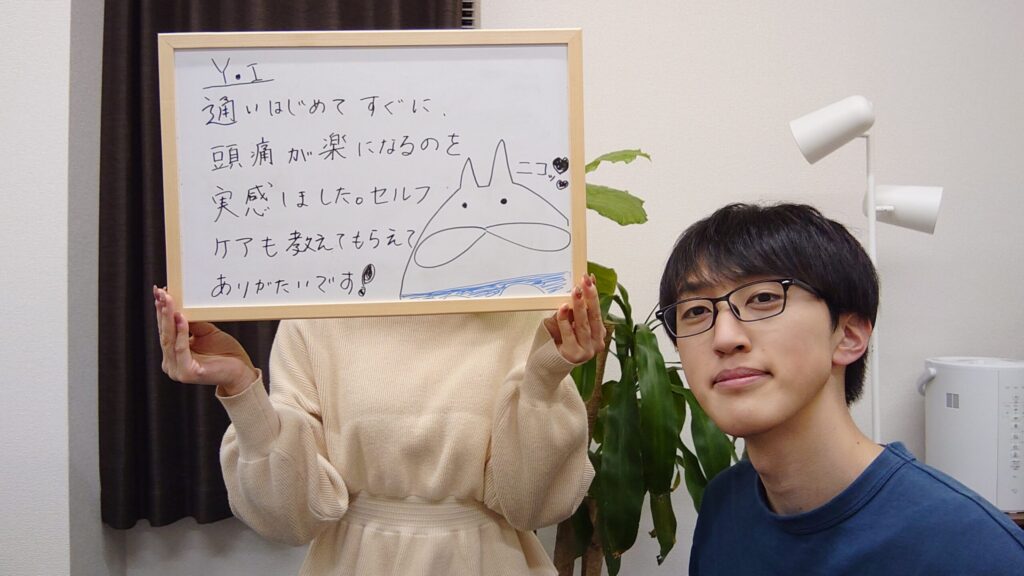 Y.I
通いはじめて すぐに、
頭痛が楽になるのを
実感しました。セルフ
ケアも教えてもらえて
ありがたいです!
ニコッ